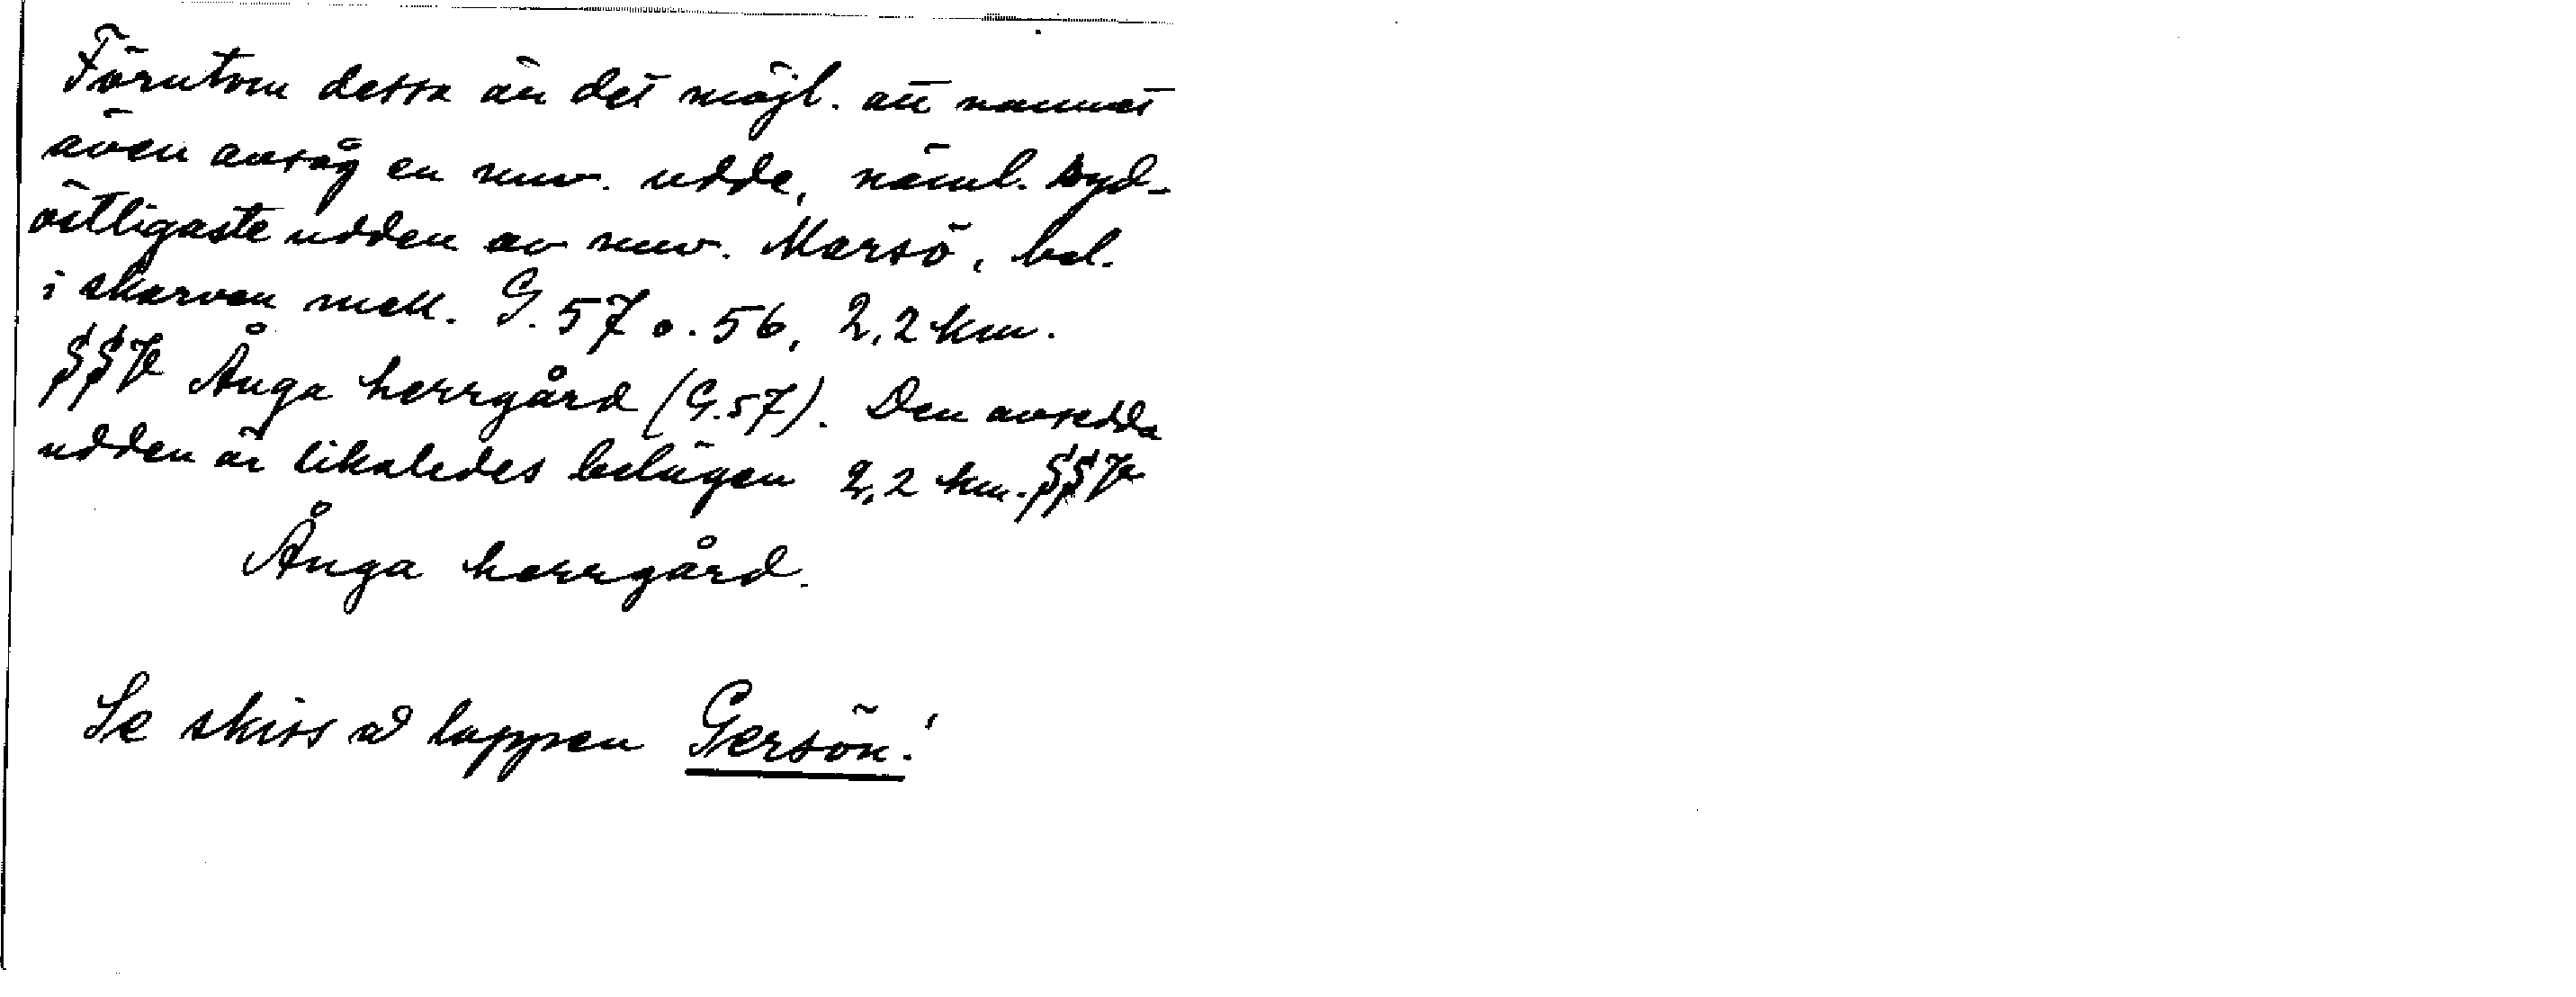 Förutom dessa är det möjl. att namnet
även avsåg en nuv. udde, näml. syd-
östligaste udden av nuv. Marsö, bel.
i skarven mell. G. 57 o. 56, 2,2 km.
SSV Ånga herrgård (G.57). Den avsedda
udden är likaledes belägen 2,2 km. SSV
Ånga herrgård.
Se skiss å lappen Gersön!